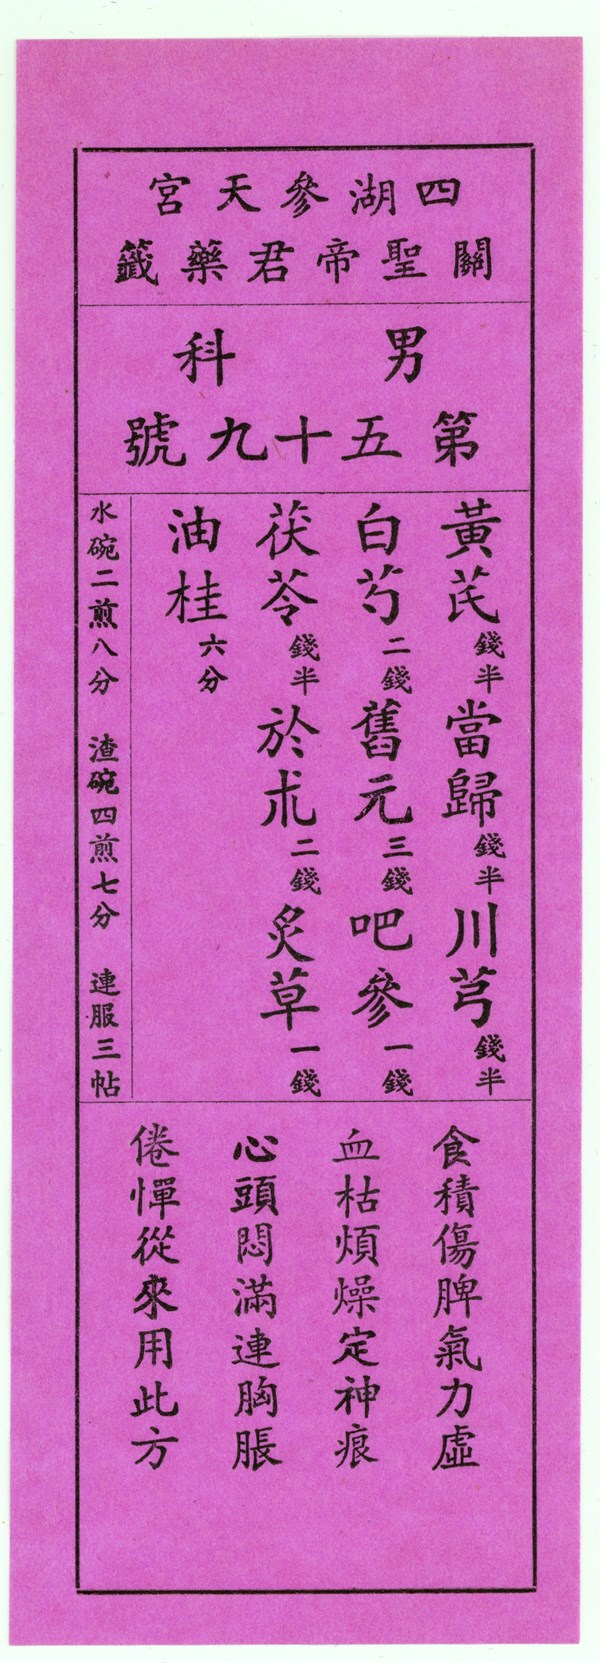 四湖參天宮
關聖帝君藥籤
男科
第五十九號
黃芪錢半當歸錢半川芎錢半
白芍二錢舊元三錢吧參一錢
茯苓錢半於朮二錢炙草一錢
油桂六分
水碗二煎八分 渣碗四煎七分 連服三帖
食積傷脾氣力虛
血枯煩燥定神痕
心頭悶滿連胸脹
倦憚從來用此方